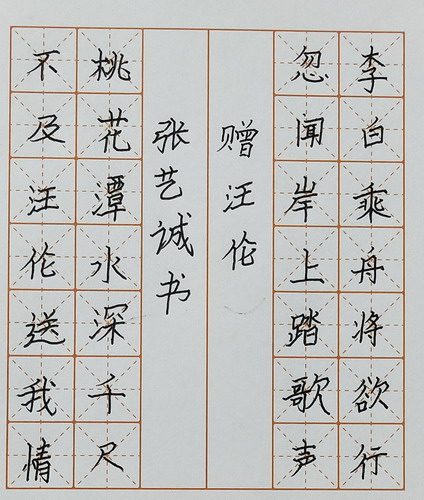 李白乘舟将欲行
忽闻岸上踏歌声
赠汪伦
张艺诚书
桃花潭水深千尺
不及汪伦送我情